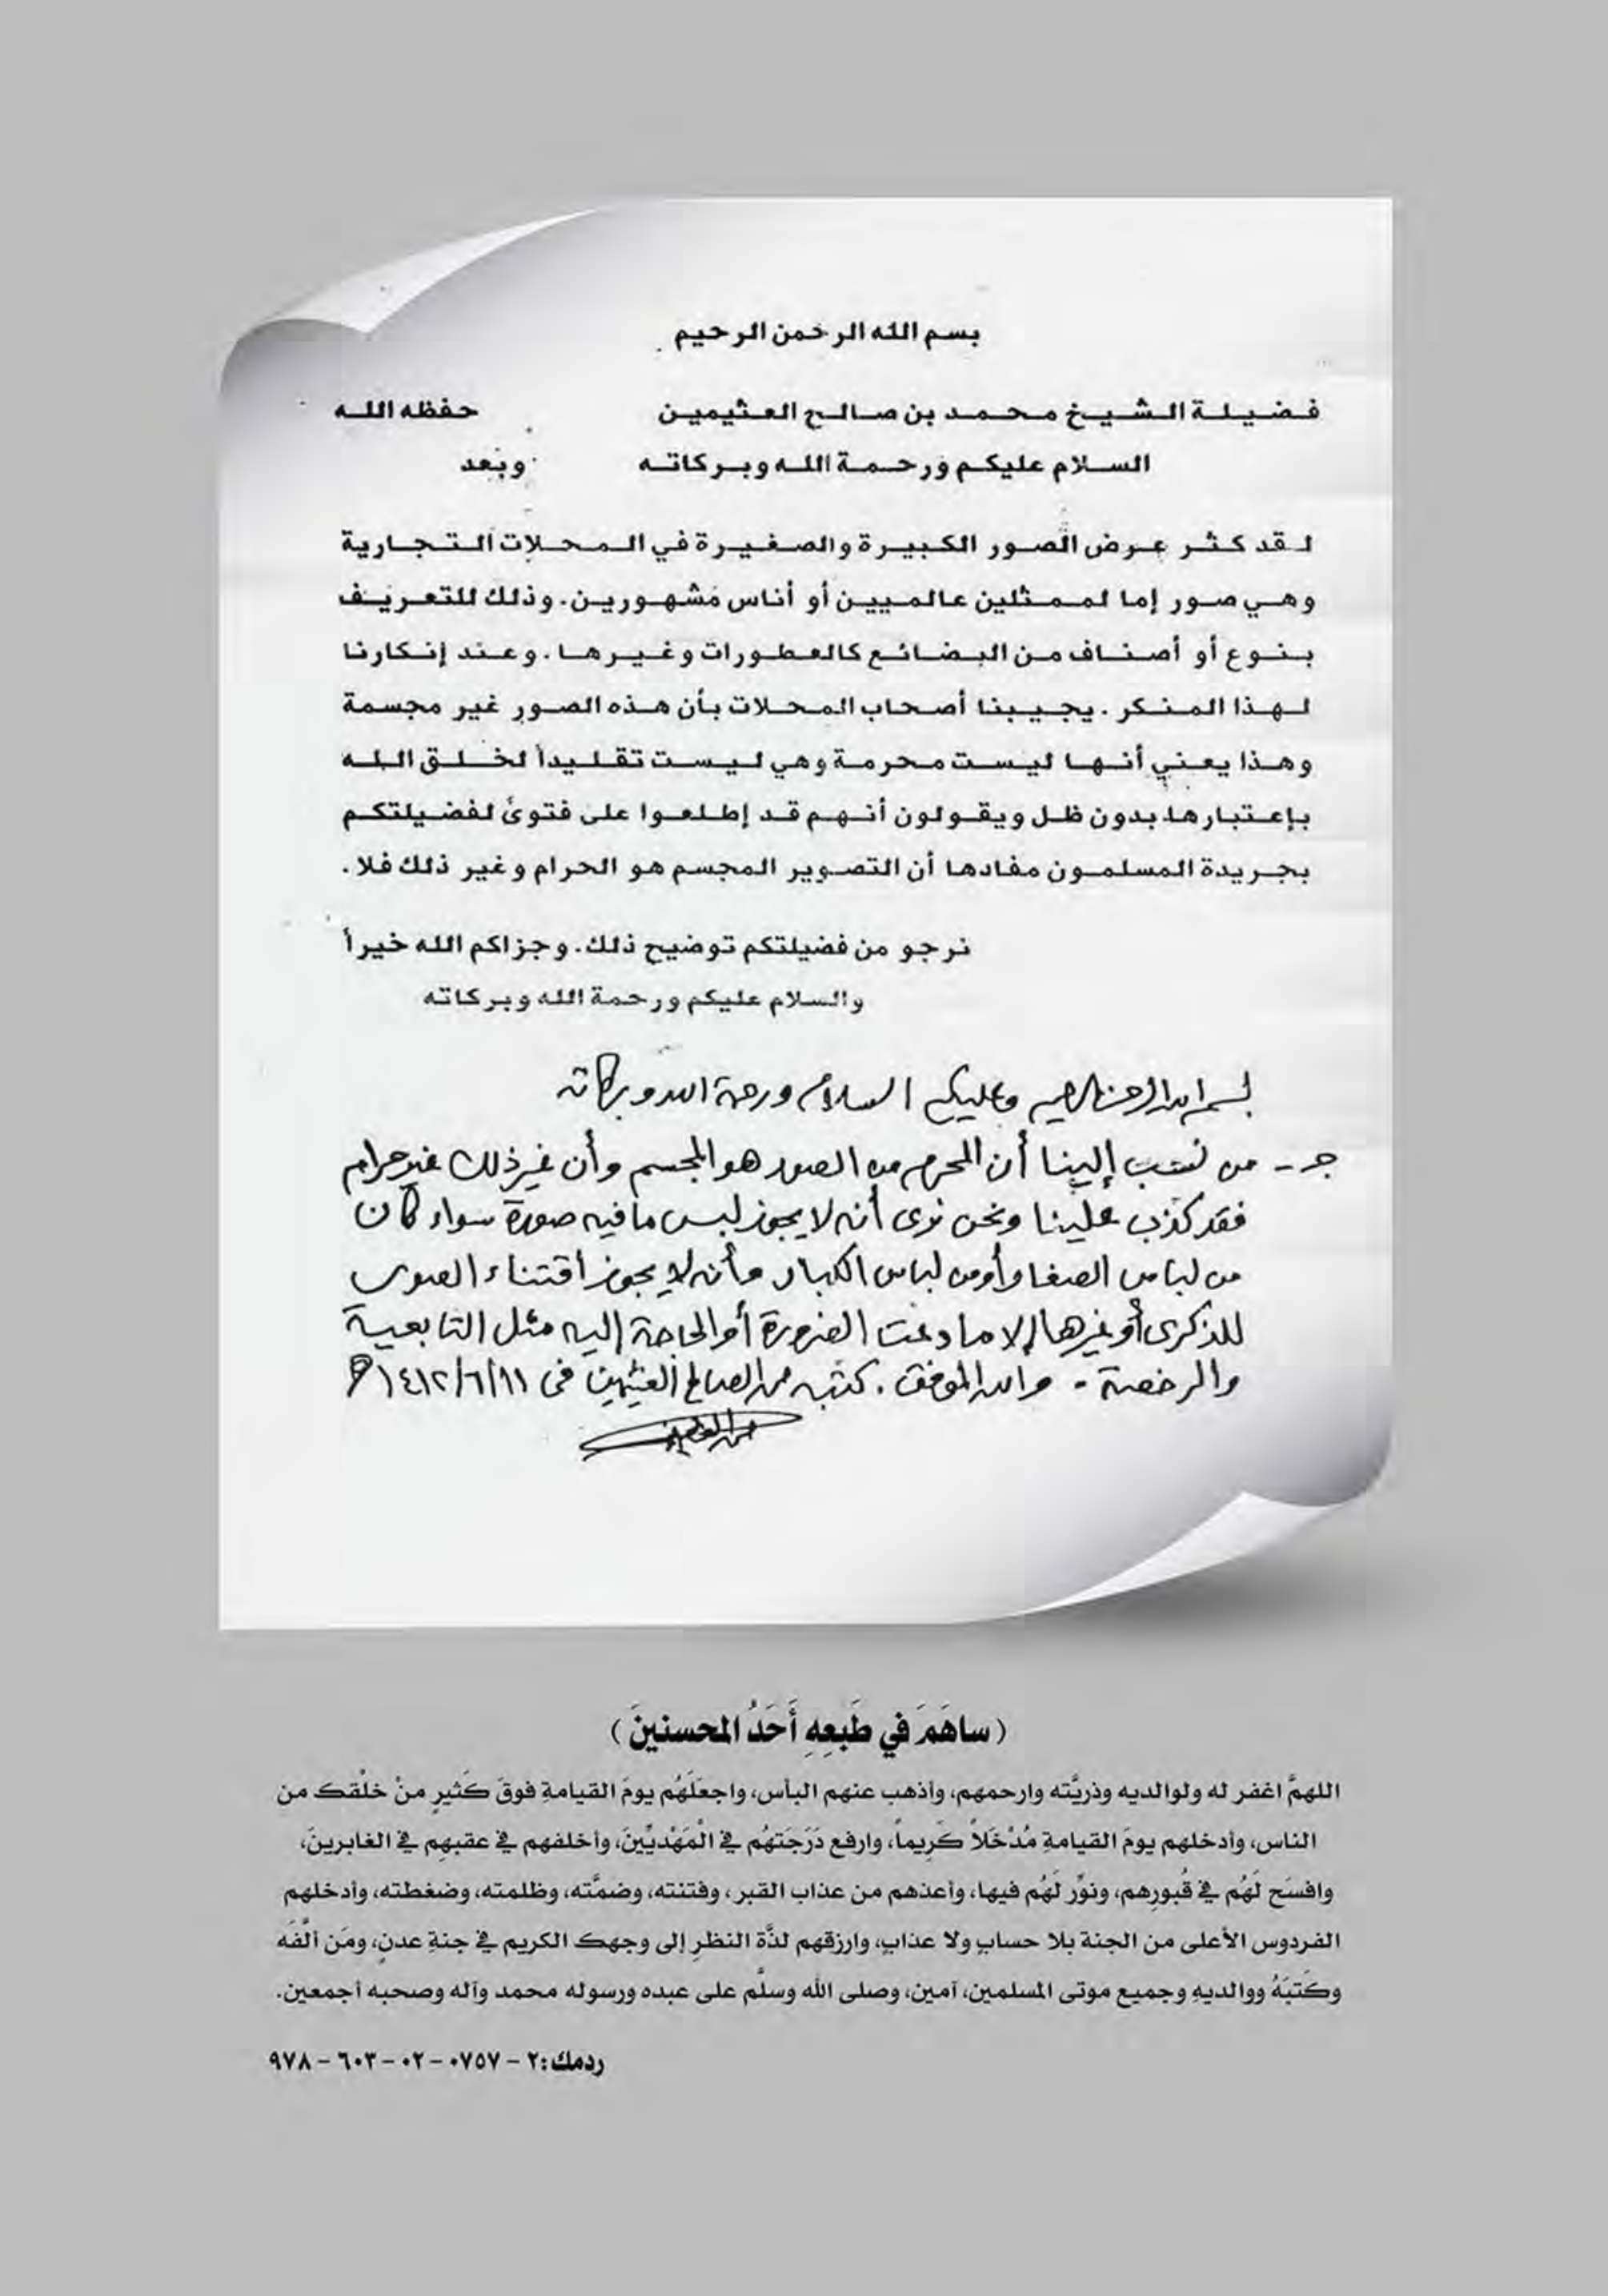 بسم الله الرحمن الرحيم
فضيلة الشيخ محمد بن صالح العثيمين حفظه الله
السلام عليكم ورحمة الله وبركاته وبعد
لقد كثر عرض الصور الكبيرة والصغيرة في المحلات التجارية
وهي صور إما لممثلين عالميين أو أناس مشهورين. وذلك للتعريف
بنوع أو أصناف من البضائع كالعطورات وغيرها. وعند إنكارنا
لهذا المنكر. يجيبنا أصحاب المحلات بأن هذه الصور غير مجسمة
وهذا يعني أنها ليست محرمة وهي ليست تقليداً لخلق الله
بإعتبارها بدون ظل ويقولون أنهم قد إطلعوا على فتوىً لفضيلتكم
بجريدة المسلمون مفادها أن التصوير المجسم هو الحرام وغير ذلك فلا.
نرجو من فضيلتكم توضيح ذلك. وجزاكم الله خيراً
والسلام عليكم ورحمة الله وبركاته
بسم الله الرحمن الرحيم وعليكم السلام ورحمة الله وبركاته
جـ - من نسب إلينا أن المحرم من الصور هو المجسم وأن غير ذلك غير حرام
فقد كذب علينا ونحن نرى أنه لا يجوز لبس ما فيه صورة سواء كان
من لباس الصغار أو من لباس الكبار وأنه لا يجوز اقتناء الصور
للذكرى أو غيرها إلا ما دعت الضرورة أو الحاجة إليه مثل التابعية
والرخصة - والله الموفق. كتبه محمد الصالح العثيمين في ١٤١٢/٦/١١هـ
(ساهَمَ في طَبعِهِ أَحَدُ المحسنينَ)
اللهمَّ اغفر له ولوالديه وذريَّته وارحمهم، وأذهب عنهم البأس، واجعَلهُم يومَ القيامةِ فوقَ كَثيرٍ منْ خلْقك من
الناس، وأدخلهم يومَ القيامةِ مُدْخَلاً كَرِيماً، وارفع دَرَجَتهُم في الْمَهْديِّينَ، وأخلفهم في عقبهِم في الغابرينَ،
وافسَح لَهُم في قُبورِهم، ونوِّر لَهُم فيها، وأعذهم من عذاب القبر، وفتنته، وضمَّته، وظلمته، وضغطته، وأدخلهم
الفردوس الأعلى من الجنة بلا حسابٍ ولا عذابٍ، وارزقهم لذَّة النظرِ إلى وجهك الكريم في جنةِ عدنٍ، ومَن ألَّفَه
وكَتبَهُ ووالديهِ وجميع موتى المسلمين، آمين، وصلى الله وسلَّم على عبده ورسوله محمد وآله وصحبه أجمعين.
ردمك: ٢ - ٠٧٥٧ - ٠٢ - ٦٠٣ - ٩٧٨